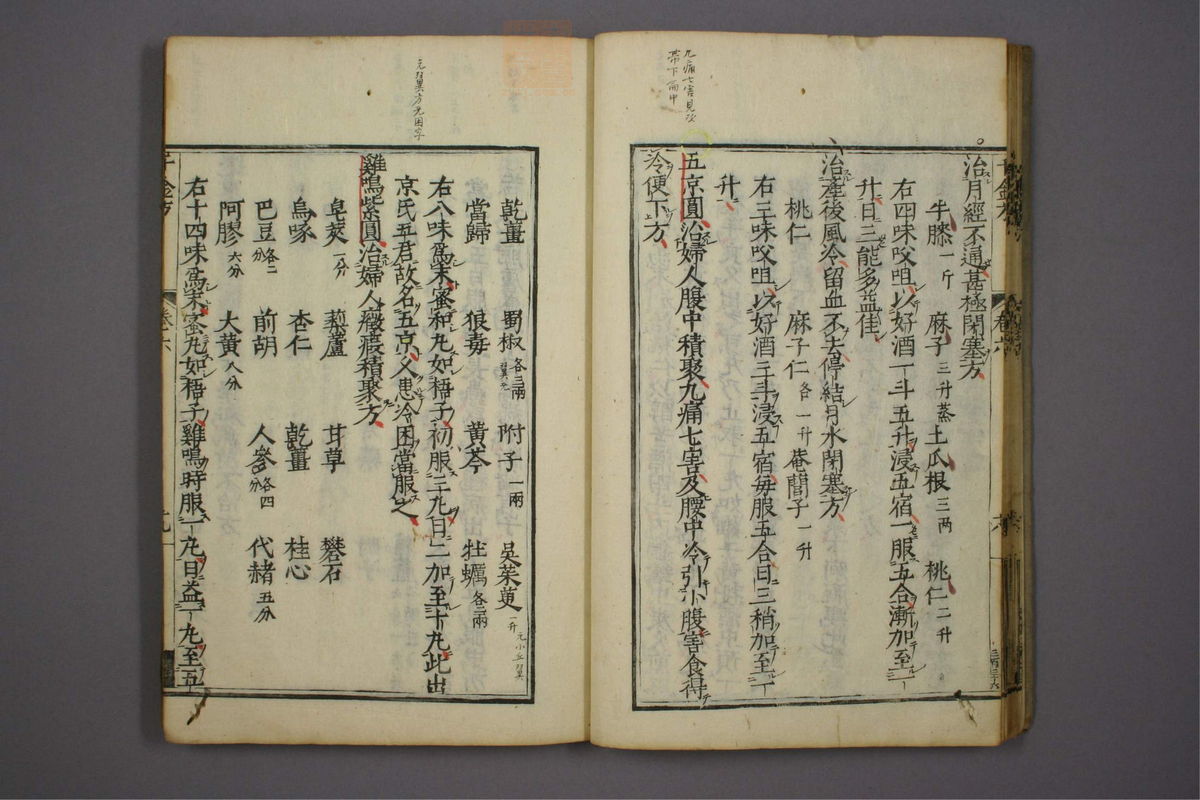 治月經不通甚極閉塞方
牛膝一斤 麻子三升蒸 土瓜根三两 桃仁二升
右四味㕮咀以好酒一斗五升浸五宿一服五合漸加至一
升日三能多益佳
治產後風冷留血不去停結月水閉塞方
桃仁 麻子仁各一升 菴䕡子一升
右三味㕮咀以好酒三斗浸五宿每服五合日三稍加至一
升
五京圓治婦人腹中積聚九痛七害及腰中冷引小腹害食得
冷便下方
乾薑 蜀椒各三兩 附子一兩 吳茱萸一升
當歸 狼毒 黃芩 牡蠣各二兩
右八味為末蜜和丸如梧子初服三丸日二加至十丸此出
京氏五君故名五京久患冷困當服之
雞鳴紫圓治婦人癥瘕積聚方
皂莢一分 藜蘆 甘草 礬石
烏喙 杏仁 乾薑 桂心
巴豆各二分 前胡 人參各四分 代赭五分
阿膠六分 大黃八分
右十四味為末蜜丸如梧子雞鳴時服一丸日益一丸至五
千金方
卷六
九